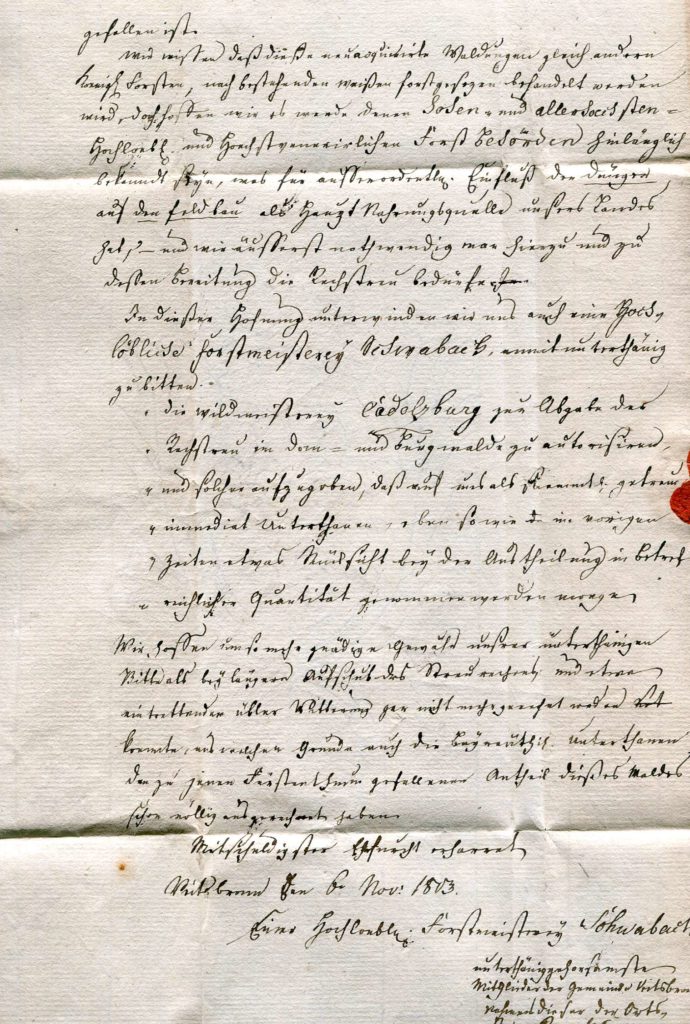 gefallen ist.
Wir wissen daß dieße neuacquirirte Waldungen gleich andern
Königl. Forsten, nach bestehenden weißen forstgesezen behandelt werden
wird, doch hoffen wir es werde denen Hohen- und allerhöchsten-
Hochloebl. und Hoechstvenerirlichen Forst Behörden hinlänglich
bekandt seyn, was für ausserordentl. Einfluß der Dünger
auf den Feldbau als Haupt Nahrungsquelle unsers Landes
hat, – und wie äusserst nothwendig man hierzu und zu
dessen Bereitung die Rechstreu bedürfe.
In dießer Hofnung unterwinden wir uns auch eine Hoch-
löbliche Forstmeisterey Schwabach, anmit unterthänig
zu bitten.
die Wildmeisterey Cadolzburg zur Abgabe des
Rechstreu im Dom- und Burgwalde zu autorisiren,
und solcher aufzugeben, daß auf uns als getreu
immediat Unterthanen, eben so wie in vorigen
Zeiten etwas Rücksicht bey der Austheilung in Betref
reichlicher Quantität genommen werden möge,
Wir hoffen um so mehr gnädige Gewähr unsrer unterthänigen
Bitte als bey längern Aufschub des Streurechens, und etwa
eintrettender übler Witterung gar nicht mehr gerechet werden
koennte, aus welchem Grunde auch die Bayreuthisch. Unterthanen
den zu jenen Fürstenthum gefallenen Antheil dießes Waldes
schon völlig ausgerechnet haben.
Mitschuldigster Ehrfurcht erharret
Veitsbronn den 6. Nov: 1803.
Einer Hochloebln. Forstmeisterey Schwabach
unterthäniggehorsamste
Mitglieder der Gemeinde Veitsbron
Nahmens dieser der Orts-